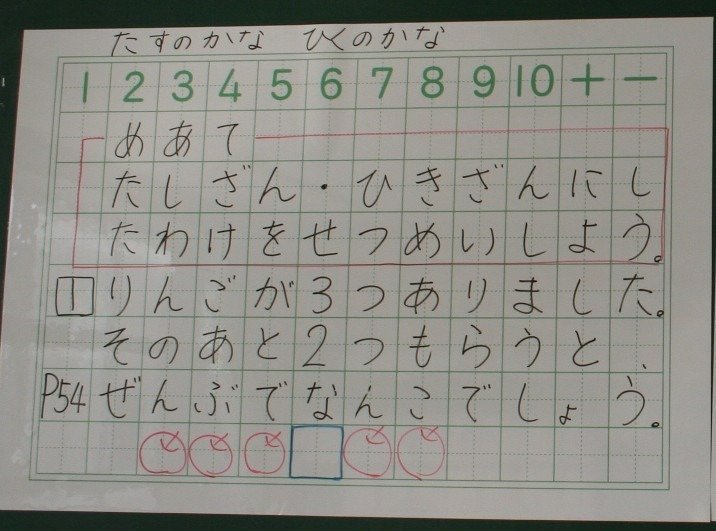 たすのかな ひくのかな
1 2 3 4 5 6 7 8 9 10 + −
めあて
たしざん・ひきざんにし
たわけをせつめいしよう。
1 りんごが3つありました。
そのあと2つもらうと、
P54 ぜんぶでなんこでしょう。